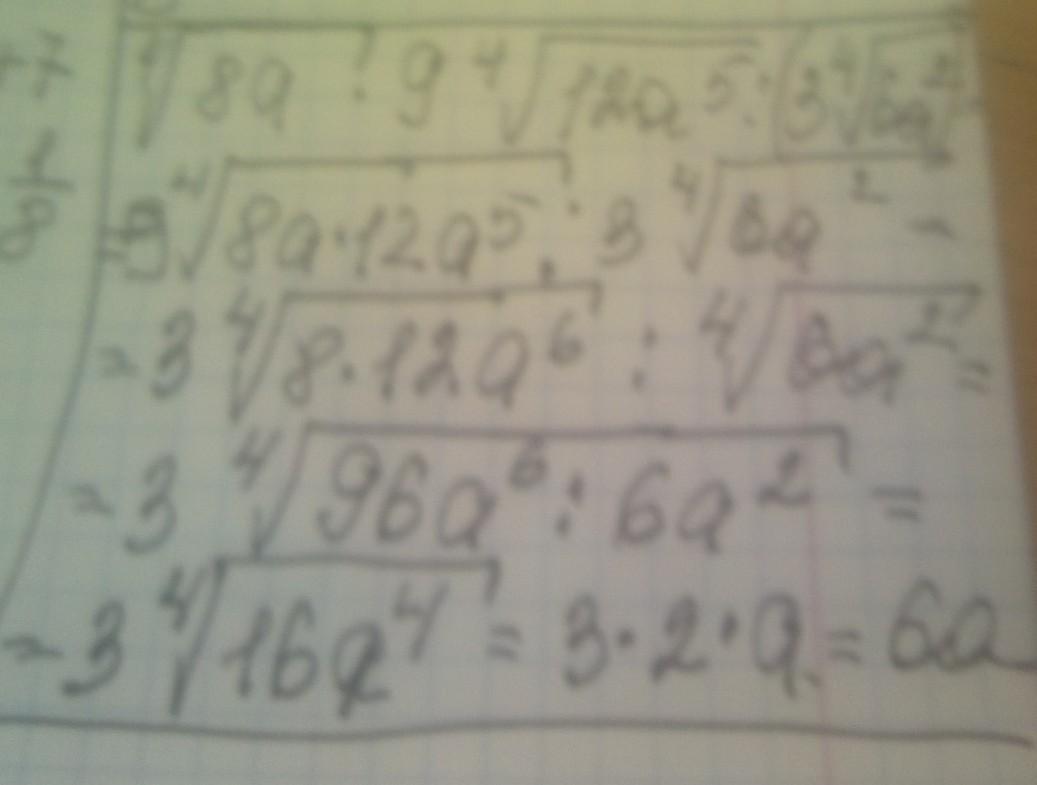 ⁴√8a : 9 ⁴√12a⁵ : (3 ⁴√6a²) =
= 9 ⁴√8a·12a⁵ : 3 ⁴√6a² =
= 3 ⁴√8·12a⁶ : ⁴√6a² =
= 3 ⁴√96a⁶ : 6a² =
= 3 ⁴√16a⁴ = 3·2·a = 6a